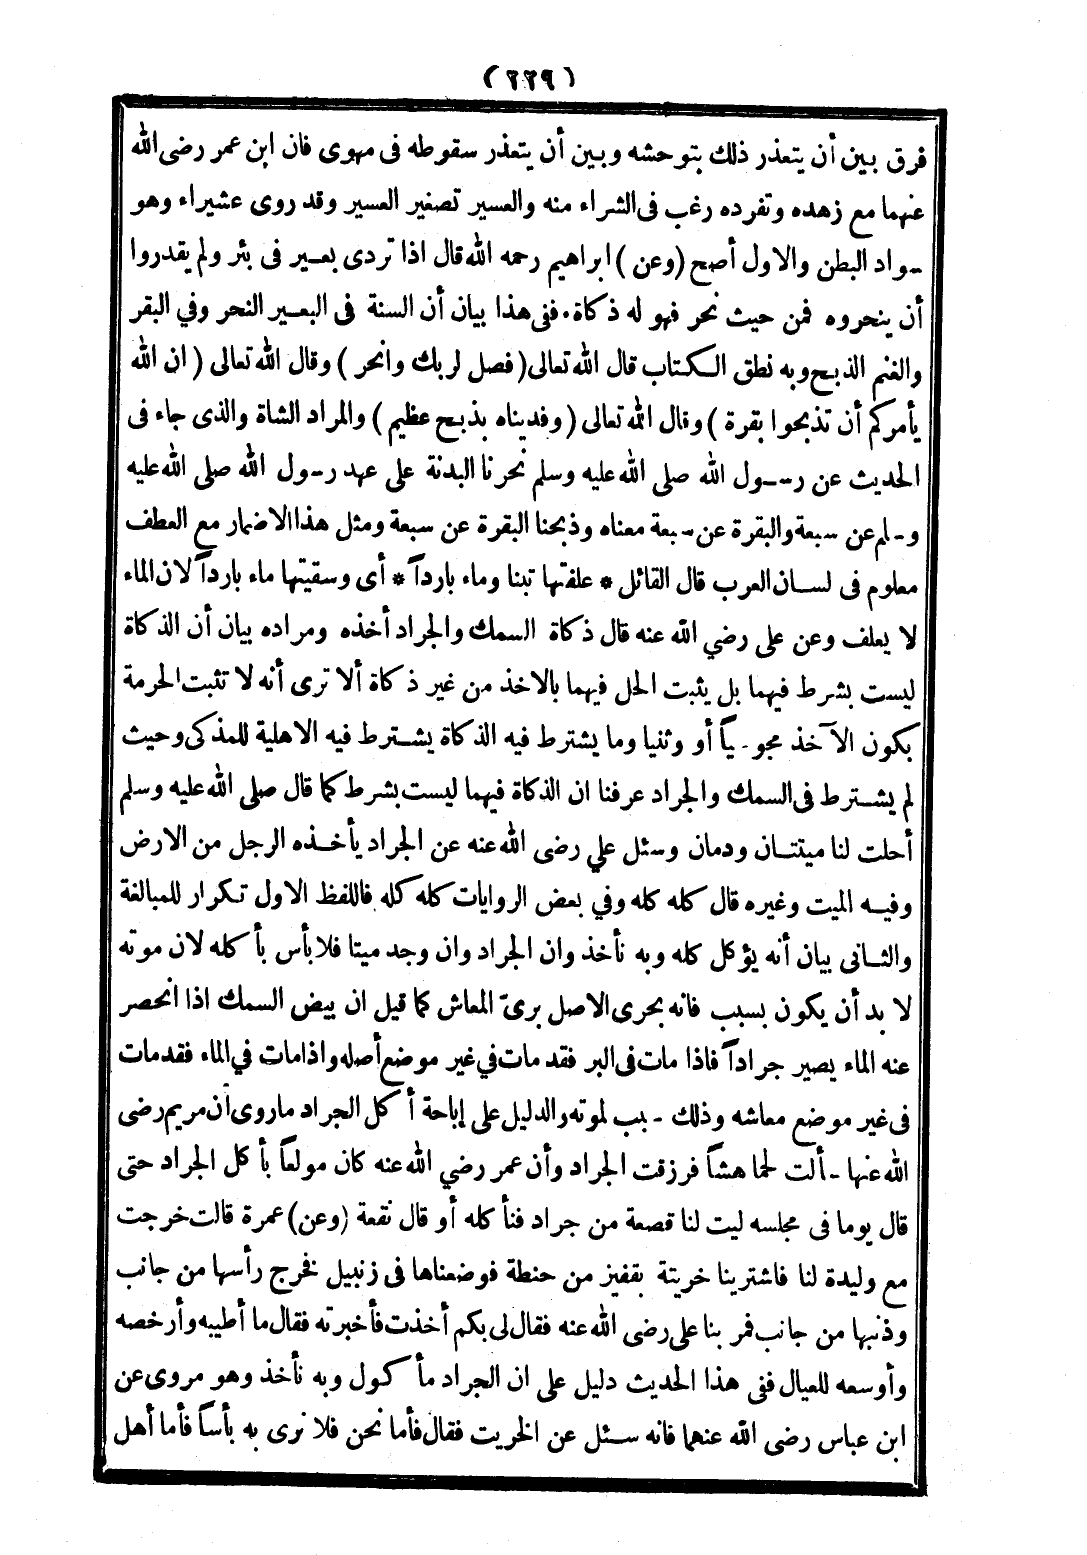 (٢٢٩)
فرق بين أن يتعذر ذلك بتوحشه وبين أن يتعذر سقوطه فى مهوى فان ابن عمر رضى الله
عنهما مع زهده وتفرده رغب فى الشراء منه والعسير تصغير العسير وقد روى عشيراء وهو
سواد البطن والاول أصح (وعن) ابراهيم رحمه الله قال اذا تردى بعير فى بئر ولم يقدروا
أن ينحروه فمن حيث نحر فهو له ذكاة. ففى هذا بيان أن السنة فى البعير النحر وفي البقر
والغنم الذبح وبه نطق الكتاب قال الله تعالى (فصل لربك وانحر) وقال الله تعالى (ان الله
يأمركم أن تذبحوا بقرة) وقال الله تعالى (وفديناه بذبح عظيم) والمراد الشاة والذى جاء فى
الحديث عن رسول الله صلى الله عليه وسلم نحرنا البدنة على عهد رسول الله صلى الله عليه
وسلم عن سبعة والبقرة عن سبعة معناه وذبحنا البقرة عن سبعة ومثل هذا الاضمار مع العطف
معلوم فى لسان العرب قال القائل * علفتها تبنا وماء بارداً * أى وسقيتها ماء بارداً لان الماء
لا يعلف وعن على رضي الله عنه قال ذكاة السمك والجراد أخذه ومراده بيان أن الذكاة
ليست بشرط فيهما بل يثبت الحل فيهما بالاخذ من غير ذكاة ألا ترى أنه لا تثبت الحرمة
بكون الآخذ مجوسياً أو وثنيا وما يشترط فيه الذكاة يشترط فيه الاهلية للمذكى وحيث
لم يشترط فى السمك والجراد عرفنا ان الذكاة فيهما ليست بشرط كما قال صلى الله عليه وسلم
أحلت لنا ميتتان ودمان وسئل علي رضى الله عنه عن الجراد يأخذه الرجل من الارض
وفيه الميت وغيره قال كله كله وفي بعض الروايات كله كله فاللفظ الاول تكرار للمبالغة
والثانى بيان أنه يؤكل كله وبه نأخذ وان الجراد وان وجد ميتا فلا بأس بأكله لان موته
لا بد أن يكون بسبب فانه بحرى الاصل برىّ المعاش كما قيل ان بيض السمك اذا انحصر
عنه الماء يصير جراداً فاذا مات فى البر فقد مات في غير موضع أصله واذا مات في الماء فقد مات
فى غير موضع معاشه وذلك سبب لموته والدليل على إباحة أكل الجراد ما روى أن مريم رضى
الله عنها سألت لحما هشاً فرزقت الجراد وأن عمر رضي الله عنه كان مولعاً بأكل الجراد حتى
قال يوما فى مجلسه ليت لنا قصعة من جراد فنأكله أو قال نقعة (وعن) عمرة قالت خرجت
مع وليدة لنا فاشترينا خريتة بقفيز من حنطة فوضعناها فى زنبيل فخرج رأسها من جانب
وذنبها من جانب فمر بنا على رضى الله عنه فقال لى بكم أخذت فأخبرته فقال ما أطيبه وأرخصه
وأوسعه للعيال ففى هذا الحديث دليل على ان الجراد مأكول وبه نأخذ وهو مروى عن
ابن عباس رضى الله عنهما فانه سئل عن الخريت فقال فأما نحن فلا نرى به بأساً فأما أهل